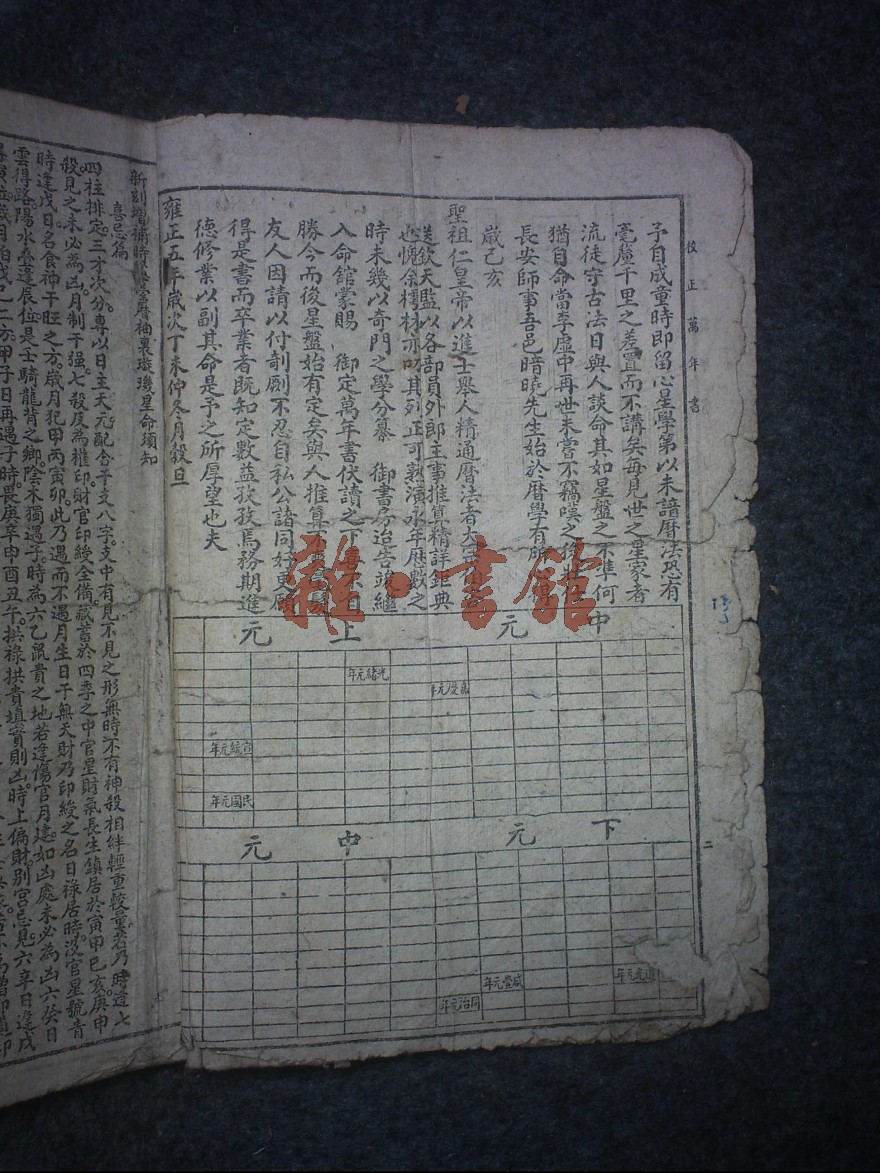 校正萬年書
予自成童時即留心星學第以未諳曆法恐有
毫釐千里之差置而不講矣每見世之星家者
流徒守古法日與人談命其如星盤之不準何
猶自命當李虛中再世未嘗不竊嘆之
長安師事吾邑暗曉先生始於曆學有所
歲己亥
聖祖仁皇帝以進士舉人精通曆法者大
送欽天監以各部員外郎主事推算精詳鉅典
也愧余樗材亦叨其列正可熟演永年歷數之
時未幾以奇門之學分纂 御書房迨告竣繼
入命館蒙賜 御定萬年書伏讀之下
勝今而後星盤始有定矣與人推算
友人因請以付剞劂不忍自私公諸同好更願
得是書而卒業者既知定數益孜孜焉務期進
德修業以副其命是予之所厚望也夫
雍正五年歲次丁未仲冬月穀旦
雜·書館
中元
上元
光緒元年
嘉慶元年
宣統元年
民國元年
下元
中元
道光
咸豐元年
同治元年
二
新刻增補時憲臺曆袖裏璇璣星命須知
喜忌篇
四柱排定三才次分專以日主天元配合干支八字支中有見不見之形無時不有神殺相絆輕重較量若乃時逢七
殺見之未必為凶月制干强七殺反為權印財官印綬全備藏蓄於四季之中官星財氣長生鎮居於寅申巳亥庚申
時逢戊日名食神干旺之方歲月犯甲丙寅卯此乃遇而不遇月生日干無天財乃印綬之名日祿居時沒官星號青
雲得路陽水疊逢辰位是壬騎龍背之鄉陰木獨遇子時為六乙鼠貴之地若逢傷官月建如凶處未必為凶六癸日
甲子日再遇子時畏庚辛申酉丑午拱祿拱貴填實則凶時上偏財別宮忌見六辛日逢戊